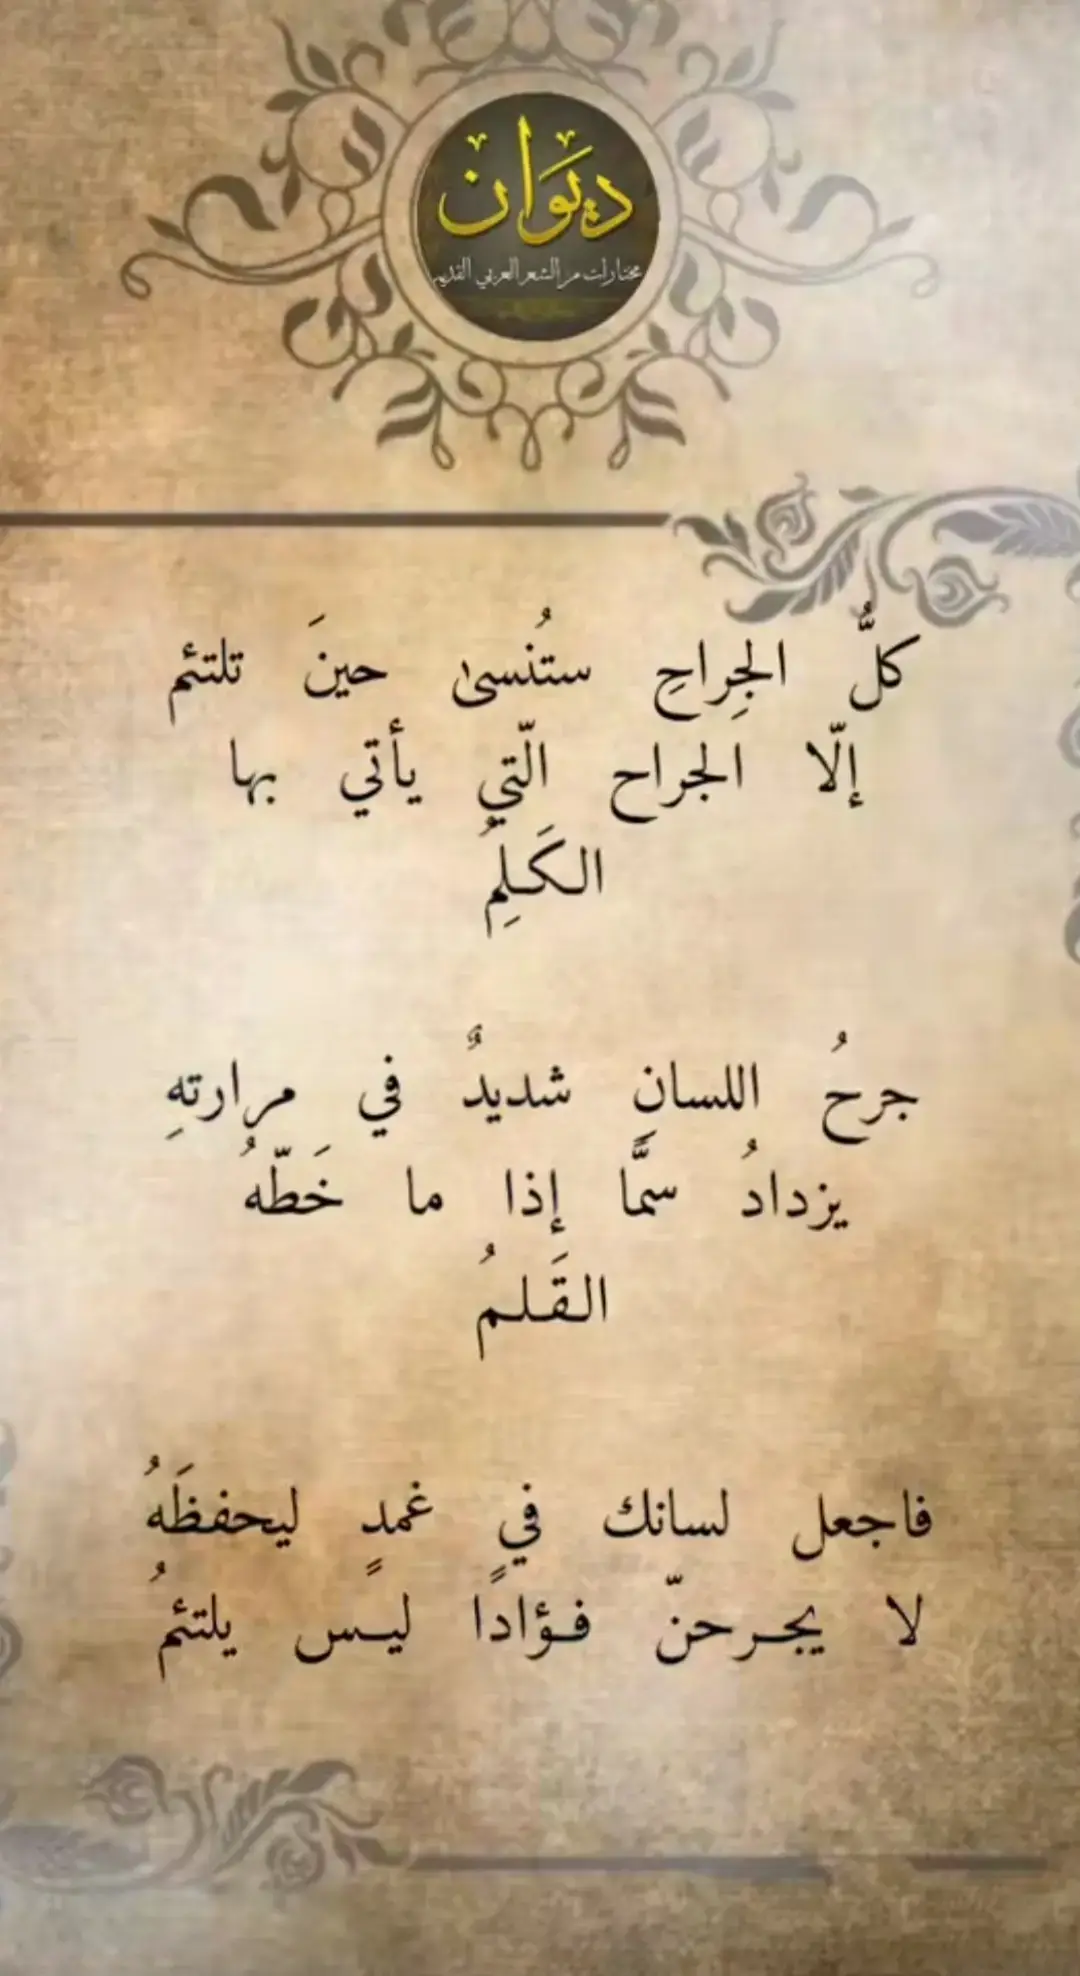 ديوان
مختارات من الشعر العربي القديم
كلُّ الجِراحِ ستُنسىٰ حينَ تلتئم
إلّا الجراح الّتي يأتي بها
الكَلِمُ
جرحُ اللسانِ شديدٌ في مرارتهِ
يزدادُ سمًّا إذا ما خَطّهُ
القَلمُ
فاجعل لسانك في غمدٍ ليحفظَهُ
لا يجرحنّ فؤادًا ليس يلتئمُ